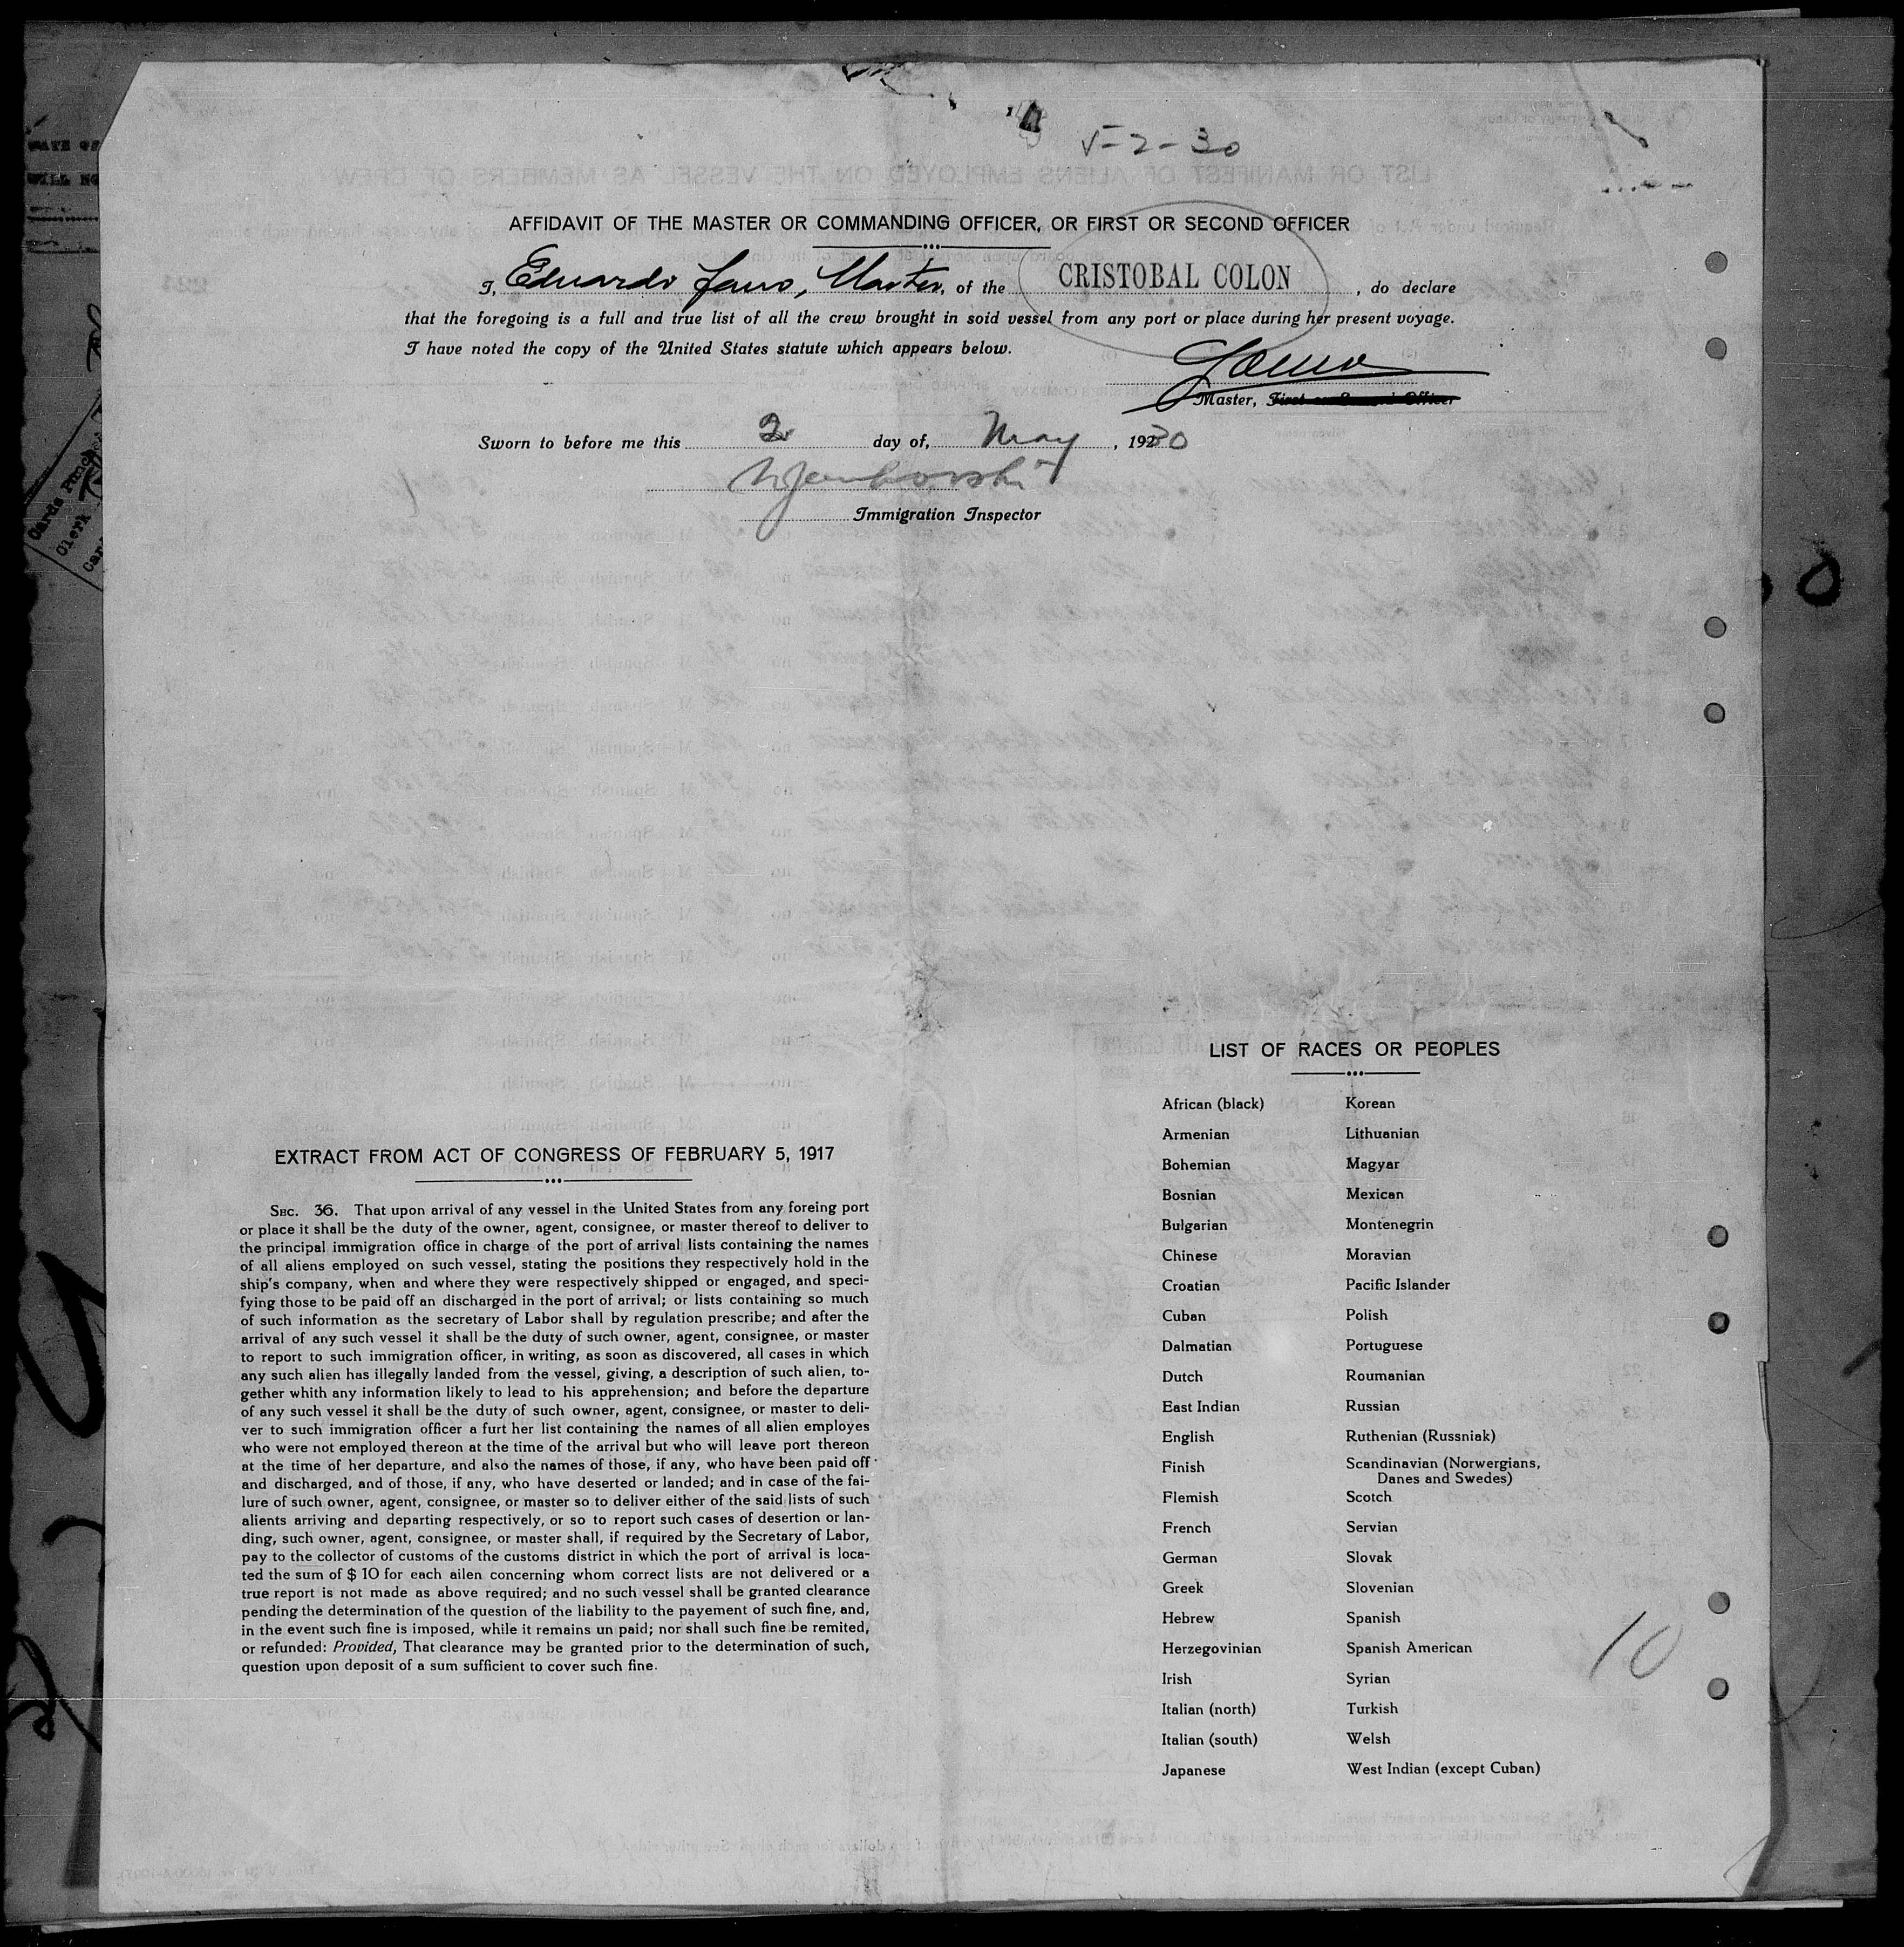 5-2-30
AFFIDAVIT OF THE MASTER OR COMMANDING OFFICER, OR FIRST OR SECOND OFFICER
I, Eduardo Fano, Master, of the CRISTOBAL COLON, do declare
that the foregoing is a full and true list of all the crew brought in soid vessel from any port or place during her present voyage.
I have noted the copy of the United States statute which appears below.
Master, First or Second Officer
Sworn to before me this 2 day of, May, 1930
Immigration Inspector
LIST OF RACES OR PEOPLES
African (black) Korean
Armenian Lithuanian
Bohemian Magyar
Bosnian Mexican
Bulgarian Montenegrin
Chinese Moravian
Croatian Pacific Islander
Cuban Polish
Dalmatian Portuguese
Dutch Roumanian
East Indian Russian
English Ruthenian (Russniak)
Finish Scandinavian (Norwergians,
Danes and Swedes)
Flemish Scotch
French Servian
German Slovak
Greek Slovenian
Hebrew Spanish
Herzegovinian Spanish American
Irish Syrian
Italian (north) Turkish
Italian (south) Welsh
Japanese West Indian (except Cuban)
10
EXTRACT FROM ACT OF CONGRESS OF FEBRUARY 5, 1917
SEC. 36. That upon arrival of any vessel in the United States from any foreing port
or place it shall be the duty of the owner, agent, consignee, or master thereof to deliver to
the principal immigration office in charge of the port of arrival lists containing the names
of all aliens employed on such vessel, stating the positions they respectively hold in the
ship's company, when and where they were respectively shipped or engaged, and speci-
fying those to be paid off an discharged in the port of arrival; or lists containing so much
of such information as the secretary of Labor shall by regulation prescribe; and after the
arrival of any such vessel it shall be the duty of such owner, agent, consignee, or master
to report to such immigration officer, in writing, as soon as discovered, all cases in which
any such alien has illegally landed from the vessel, giving, a description of such alien, to-
gether whith any information likely to lead to his apprehension; and before the departure
of any such vessel it shall be the duty of such owner, agent, consignee, or master to deli-
ver to such immigration officer a furt her list containing the names of all alien employes
who were not employed thereon at the time of the arrival but who will leave port thereon
at the time of her departure, and also the names of those, if any, who have been paid off
and discharged, and of those, if any, who have deserted or landed; and in case of the fai-
lure of such owner, agent, consignee, or master so to deliver either of the said lists of such
alients arriving and departing respectively, or so to report such cases of desertion or lan-
ding, such owner, agent, consignee, or master shall, if required by the Secretary of Labor,
pay to the collector of customs of the customs district in which the port of arrival is loca-
ted the sum of $ 10 for each ailen concerning whom correct lists are not delivered or a
true report is not made as above required; and no such vessel shall be granted clearance
pending the determination of the question of the liability to the payement of such fine, and,
in the event such fine is imposed, while it remains un paid; nor shall such fine be remited,
or refunded: Provided, That clearance may be granted prior to the determination of such,
question upon deposit of a sum sufficient to cover such fine.